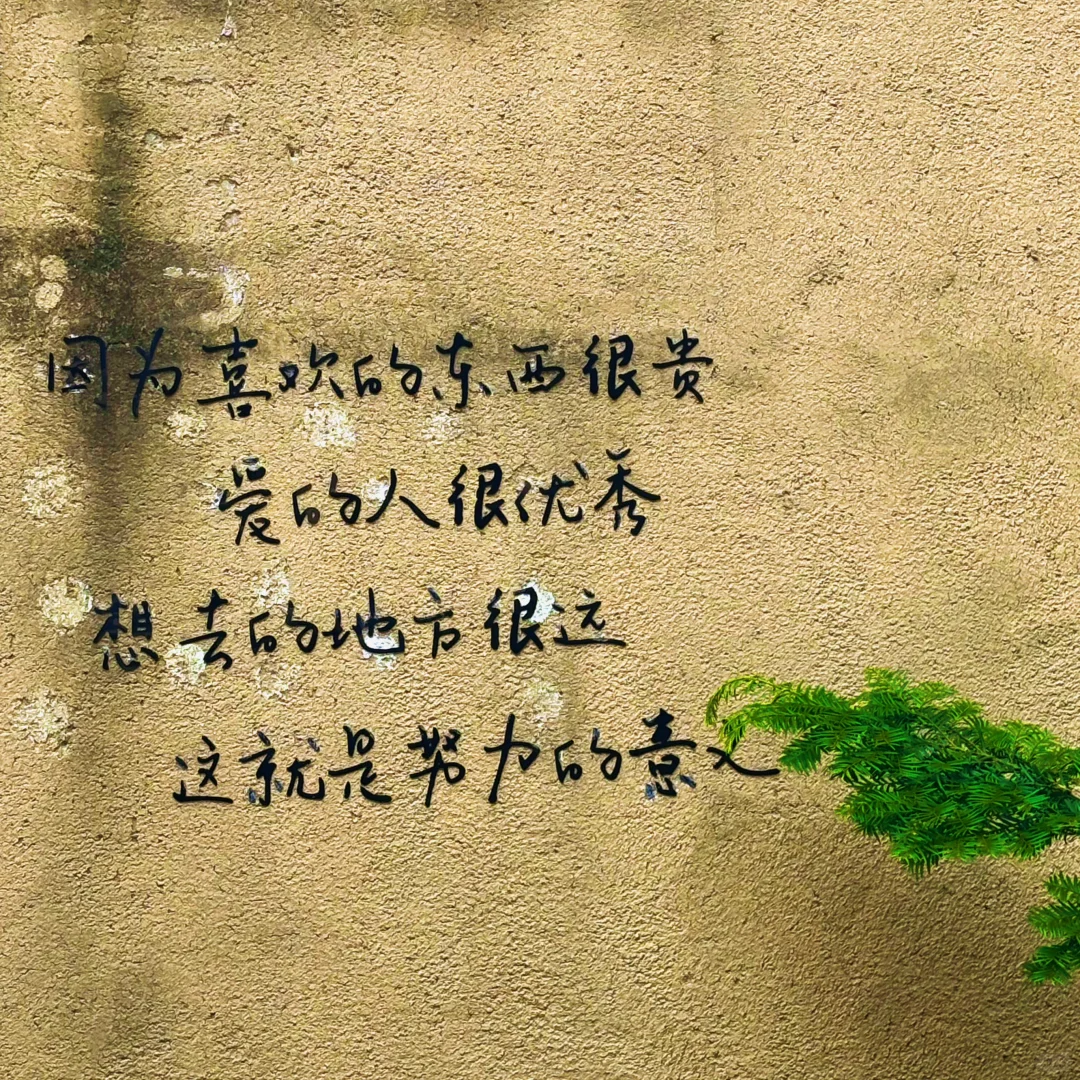 因为喜欢的东西很贵
爱的人很优秀
想去的地方很远
这就是努力的意义